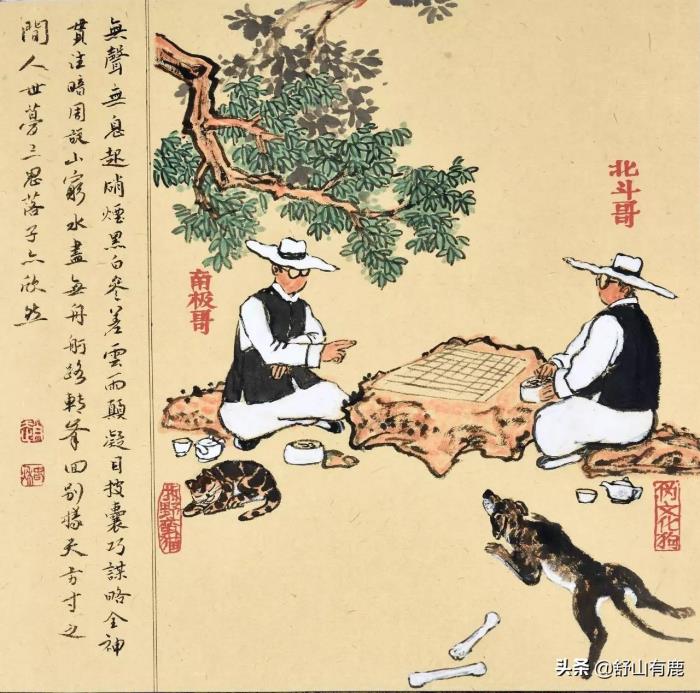 無聲無息起硝煙黑白參差雲雨顛凝目囊巧謀略全神
貫注暗周旋山窮水盡無舟路轉峯回別樣天方寸之
間人世夢三思落子亦欣然
北斗哥
南极哥
文化狗
头条 @舒山有鹿